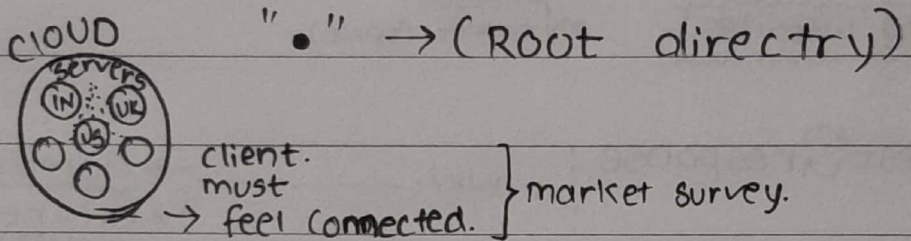 CLOUD "•" → (ROOT directry)
Servers
IN UK
US
client.
must
→ feel connected. } market survey.